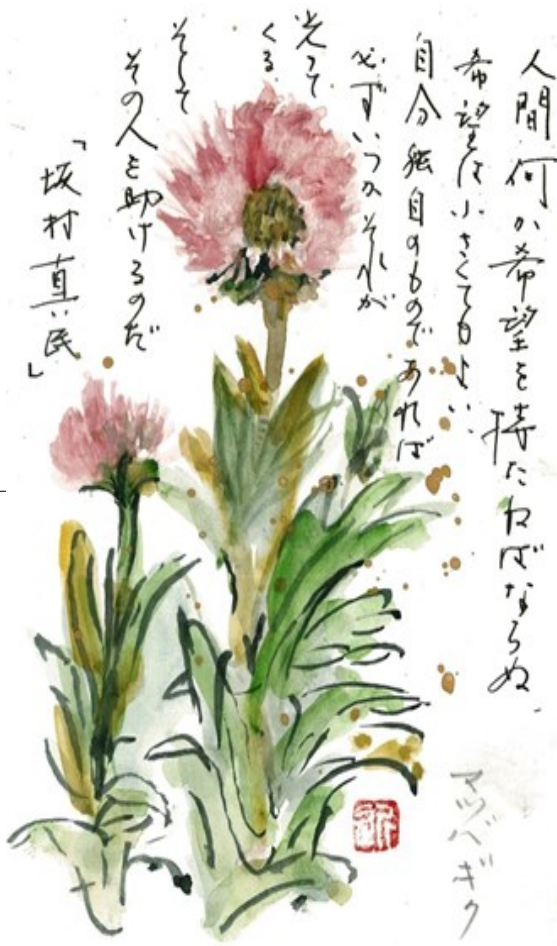 人間何か希望を持たねばならぬ
希望は小さくてもよい、
自分独自のものであれば
必ずいつかそれが
光って
くる
そして
その人を助けるのだ
「坂村真民」
マツバギク